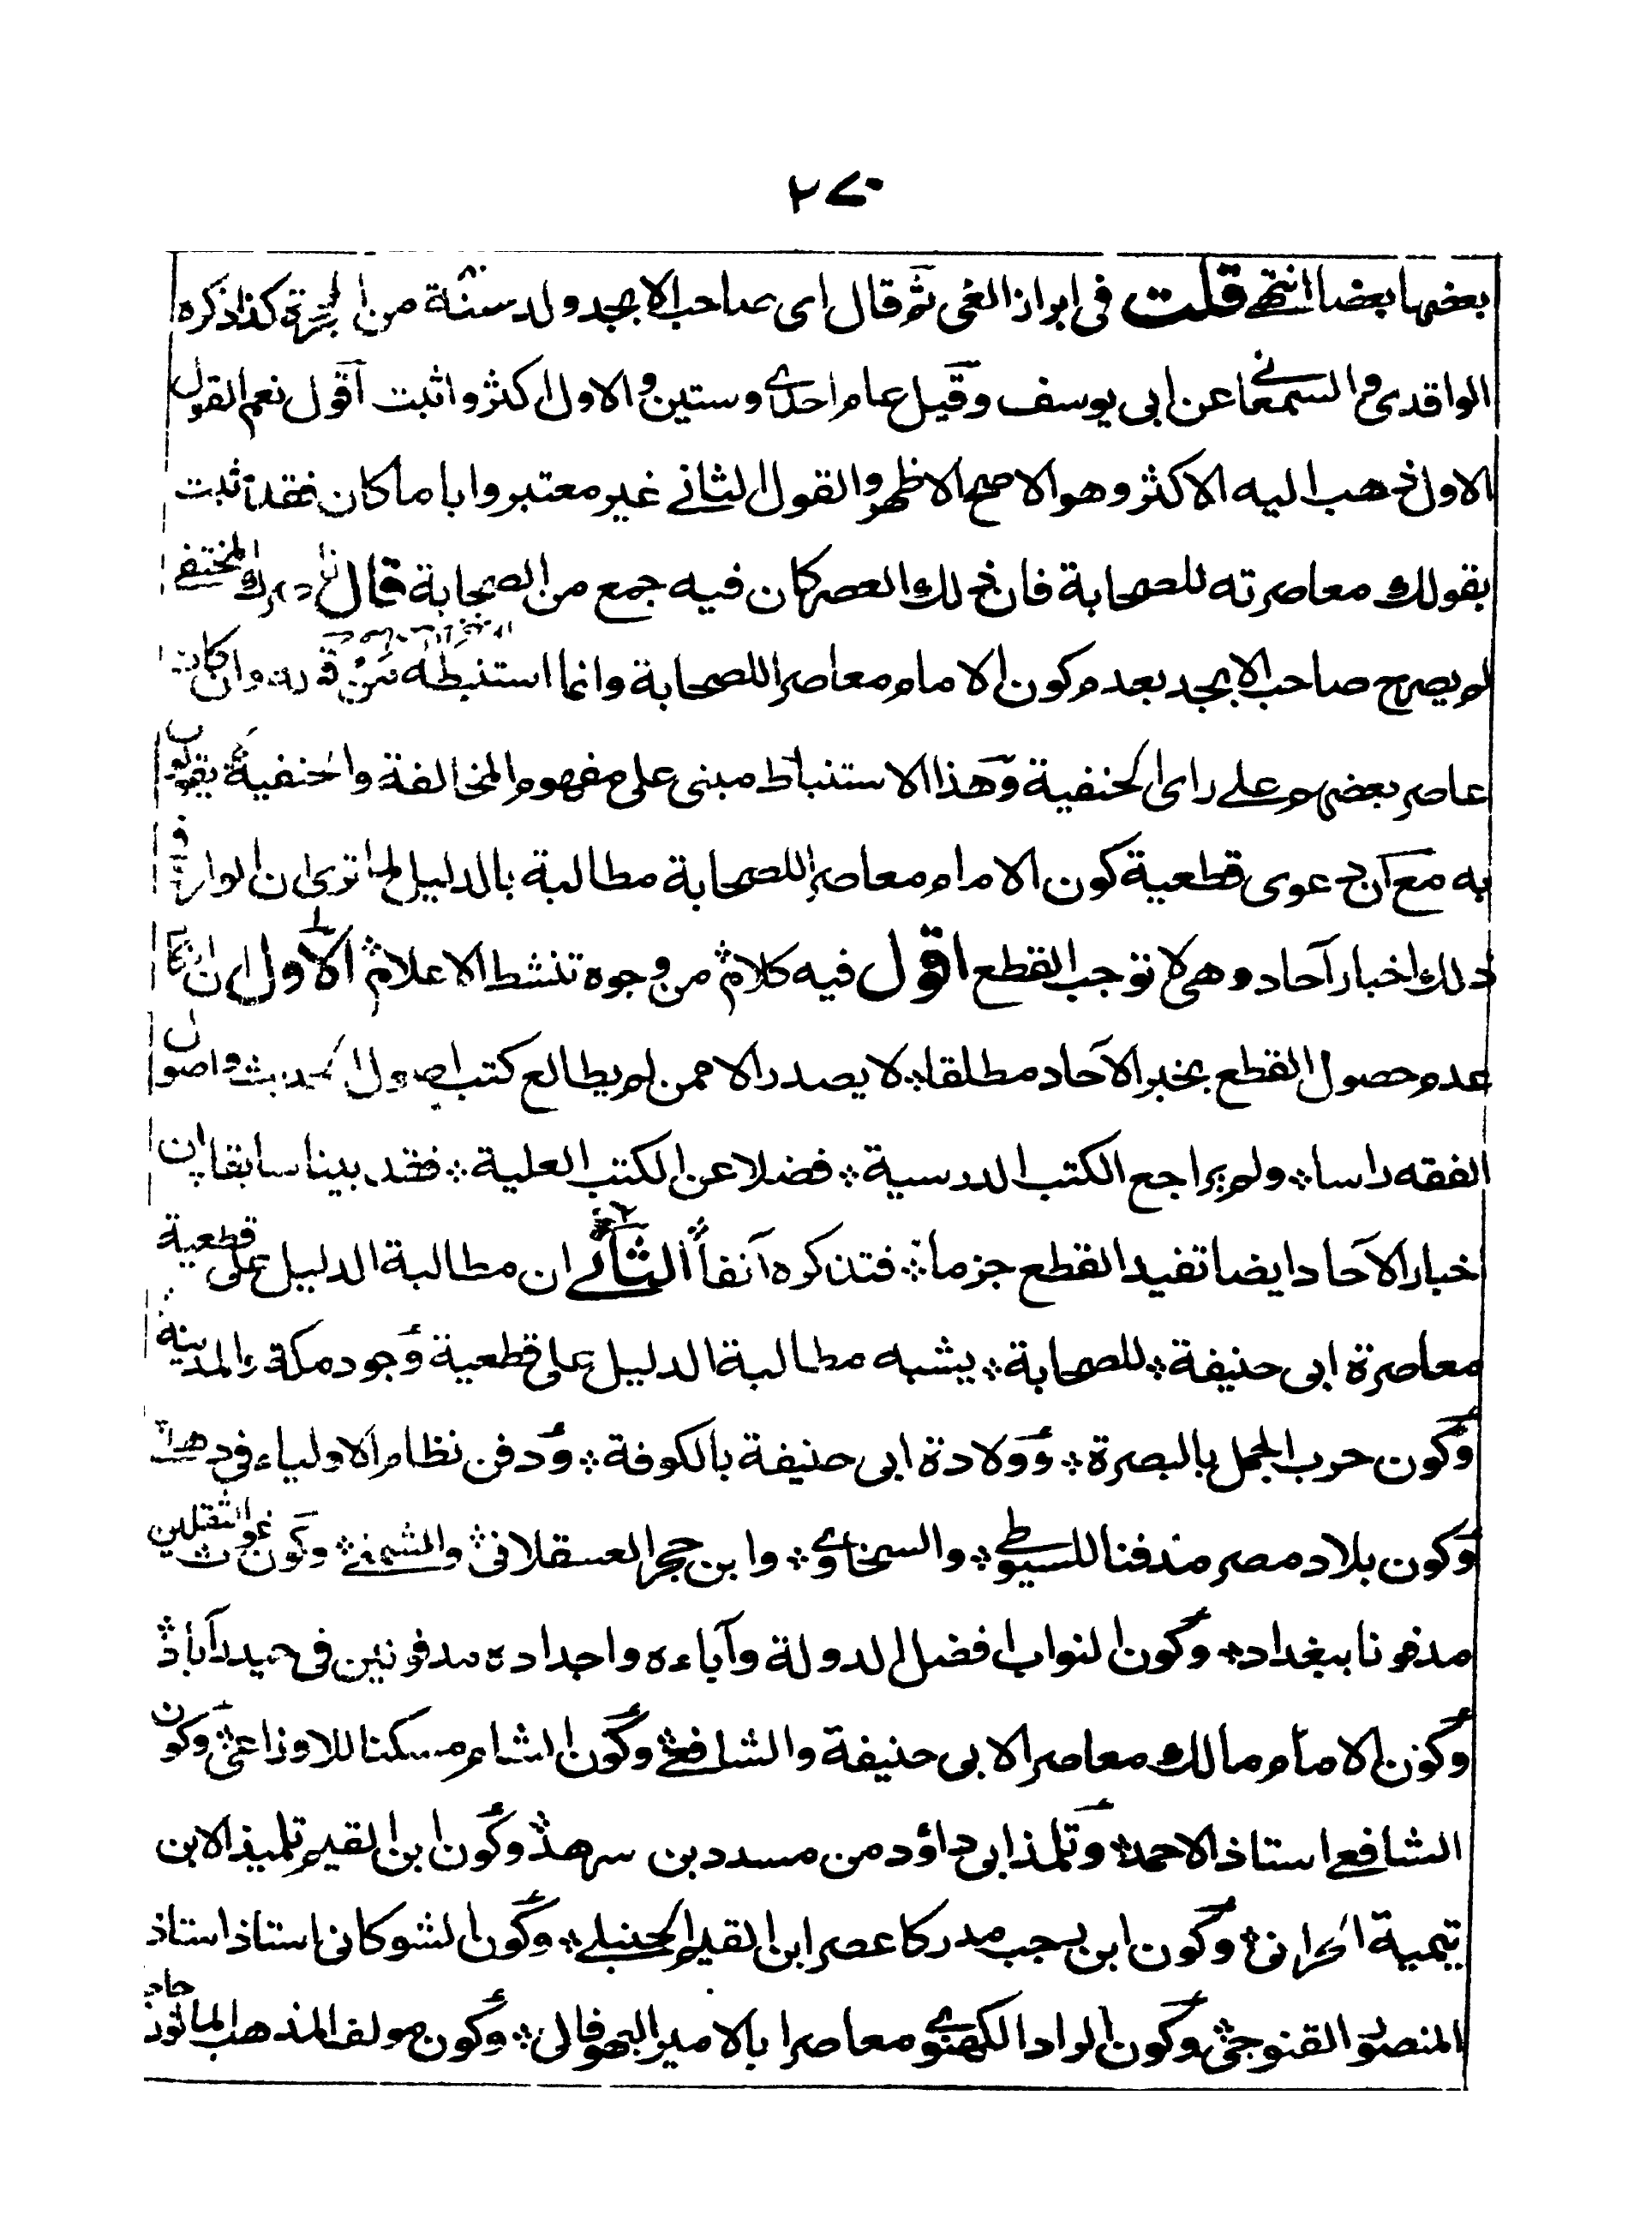 ٢٧٠
بعضها بعضا انتهى قلت فى ابراز الغى ثم قال اى صاحب الابجد ولد سنة من الهجرة كذا ذكره
الواقدى والسمعانى عن ابى يوسف وقيل عام احدى وستين والاول اكثر واثبت اقول نعم القول
الاول ذهب اليه الاكثر وهو الاصح الاظهر والقول الثانى غير معتبر وايا ما كان فقد ثبت
بقولك معاصرته للصحابة فان ذلك العصر كان فيه جمع من الصحابة قال المختفى
لم يصرح صاحب الابجد بعدم كون الامام معاصرا للصحابة وانما استنبطه من وان كان
عاصر بعضهم على راى الحنفية وهذا الاستنباط مبنى على مفهوم المخالفة والحنفية يقولون
به مع ان دعوى قطعية كون الامام معاصرا للصحابة مطالبة بالدليل اما ترى ان الوارد فى
ذلك اخبار آحاد وهى لا توجب القطع اقول فيه كلام من وجوه تنشط الاعلام الاول ان
عدم حصول القطع بخبر الآحاد مطلقا لا يصدر الا ممن لم يطالع كتب اصول الحديث واصول
الفقه راسا ولم يراجع الكتب الدرسية فضلا عن الكتب العلية فقد بينا سابقا ان
اخبار الآحاد ايضا تفيد القطع جزما فتذكره آنفا الثانى ان مطالبة الدليل على قطعية
معاصرة ابى حنيفة للصحابة يشبه مطالبة الدليل على قطعية وجود مكة والمدينة
وكون حرب الجمل بالبصرة وولادة ابى حنيفة بالكوفة ودفن نظام الاولياء فى دهلى
وكون بلاد مصر مدفنا للسيوطى والسخاوى وابن حجر العسقلانى والشمنى وكون غوث الثقلين
مدفونا ببغداد وكون النواب افضل الدولة وآباءه واجداده مدفونين فى حيدرآباد
وكون الامام مالك معاصرا لابى حنيفة والشافعى وكون الشام مسكنا للاوزاعى وكون
الشافعى استاذا لاحمد وتلمذ ابى داؤد من مسدد بن سرهد وكون ابن القيم تلميذا لابن
تيمية الحرانى وكون ابن رجب مدركا عصر ابن القيم الحنبلى وكون الشوكانى استاذ استاذ
المنصور القنوجى وكون الراد الكهنوى معاصرا بالامير البهوفالى وكون مولف المذهب الماثور